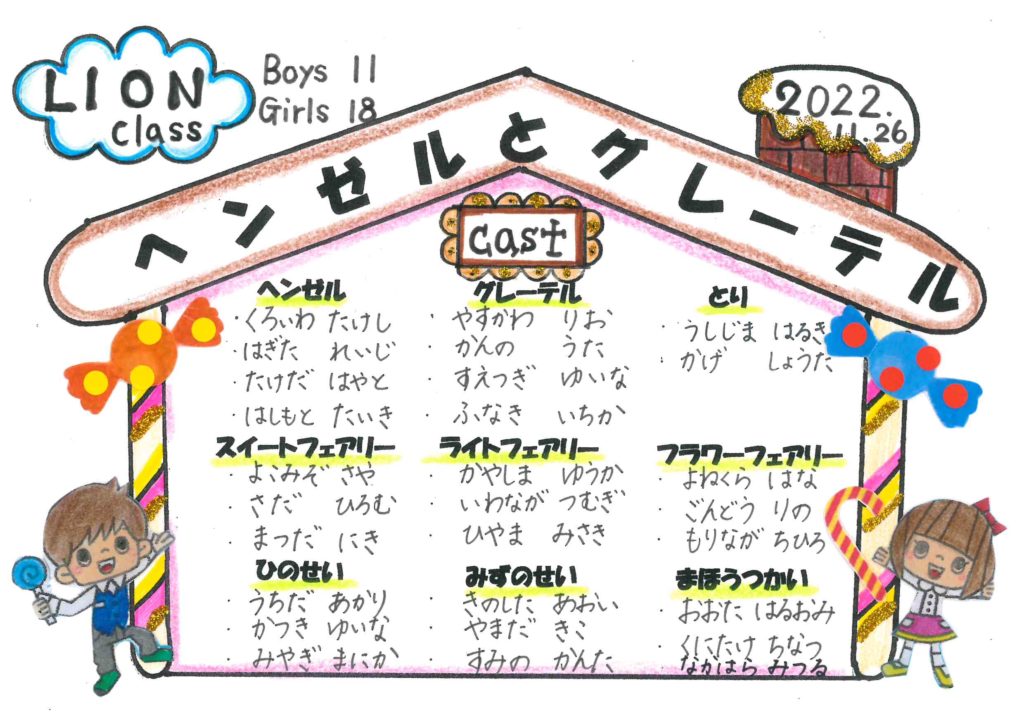 LION
class
Boys 11
Girls 18
2022.
11.26
ヘンゼルとグレーテル
cast
ヘンゼル
・くろいわ たけし
・はぎた れいじ
・たけだ はやと
・はしもと たいき
グレーテル
・やすがわ りお
・かんの うた
・すえつぎ ゆいな
・ふなき いちか
とり
・うしじま はるき
・かげ しょうた
スイートフェアリー
・よこみぞ さや
・さだ ひろむ
・まつだ にき
ライトフェアリー
・かやしま ゆうか
・いわなが つむぎ
・ひやま みさき
フラワーフェアリー
・よねくら はな
・ごんどう りの
・もりなが ちひろ
ひのせい
・うちだ あかり
・かつき ゆいな
・みやぎ まにか
みずのせい
・きのした あおい
・やまだ きこ
・すみの かんた
まほうつかい
・おおた はるおみ
・くにたけ ちなつ
なかはら みつる